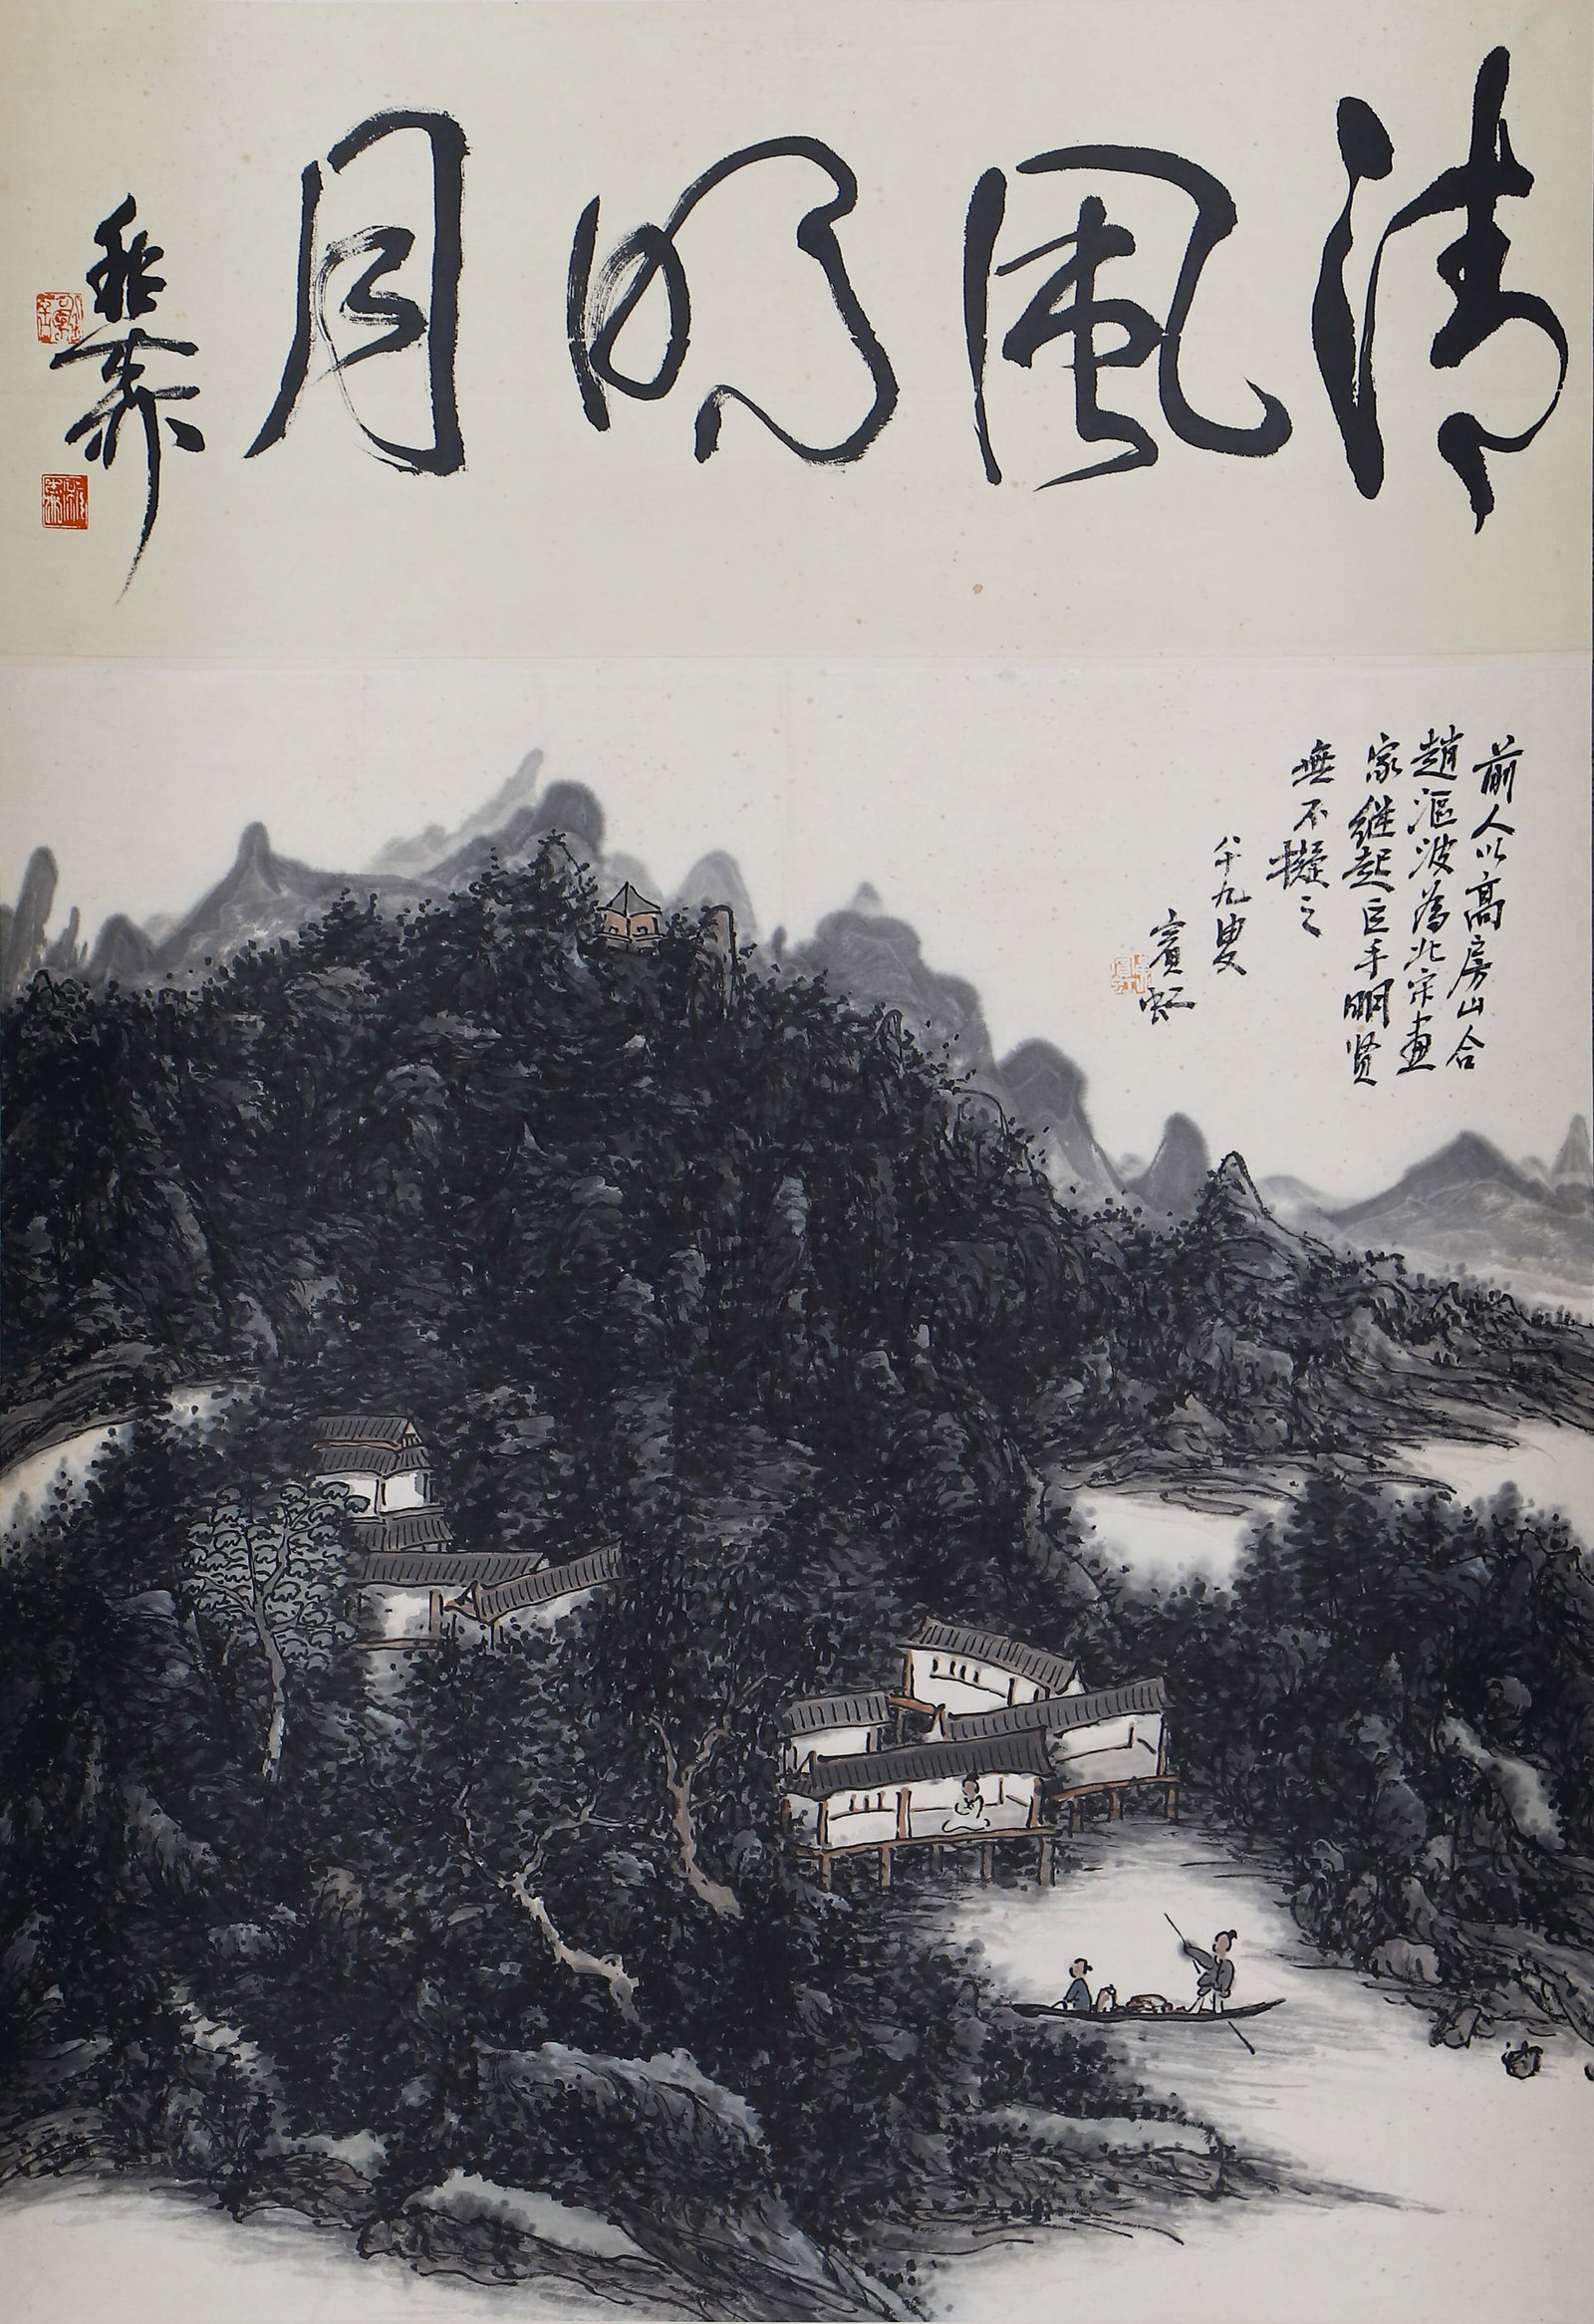 清風明月
前人以高房山合
趙漚波為北宋畫
家继起巨手明贤
無不擬之
八十九叟
賓虹